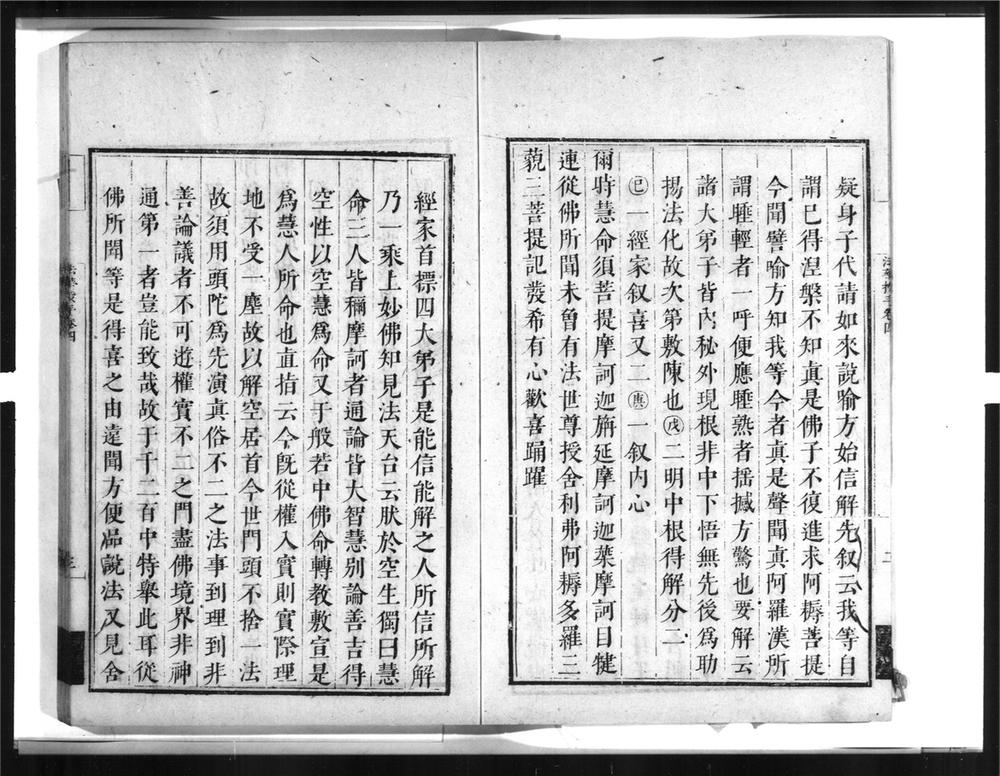 疑身子代請如來說喻方始信解先叙云我等自
謂已得涅槃不知真是佛子不復進求阿耨菩提
今聞譬喻方知我等今者真是聲聞真阿羅漢所
謂睡輕者一呼便應睡熟者揺撼方驚也要解云
諸大弟子皆內秘外現根非中下悟無先後為助
揚法化故次第敷陳也戊二明中根得解分二
己一經家叙喜又二庚一叙內心
爾時慧命須菩提摩訶迦旃延摩訶迦葉摩訶目犍
連從佛所聞未曾有法世尊授舍利弗阿耨多羅三
藐三菩提記發希有心歡喜踊躍
經家首標四大弟子是能信能解之人所信所解
乃一乘上妙佛知見法天台云肰於空生獨曰慧
命三人皆稱摩訶者通論皆大智慧別論善吉得
空性以空慧為命又于般若中佛命轉教敷宣是
為慧人所命也直指云今既從權入實則實際理
地不受一塵故以解空居首今世門頭不捨一法
故須用頭陀為先演真俗不二之法事到理到非
善論議者不可遊權實不二之門盡佛境界非神
通第一者豈能致哉故于千二百中特舉此耳從
佛所聞等是得喜之由遠聞方便品說法又見舍